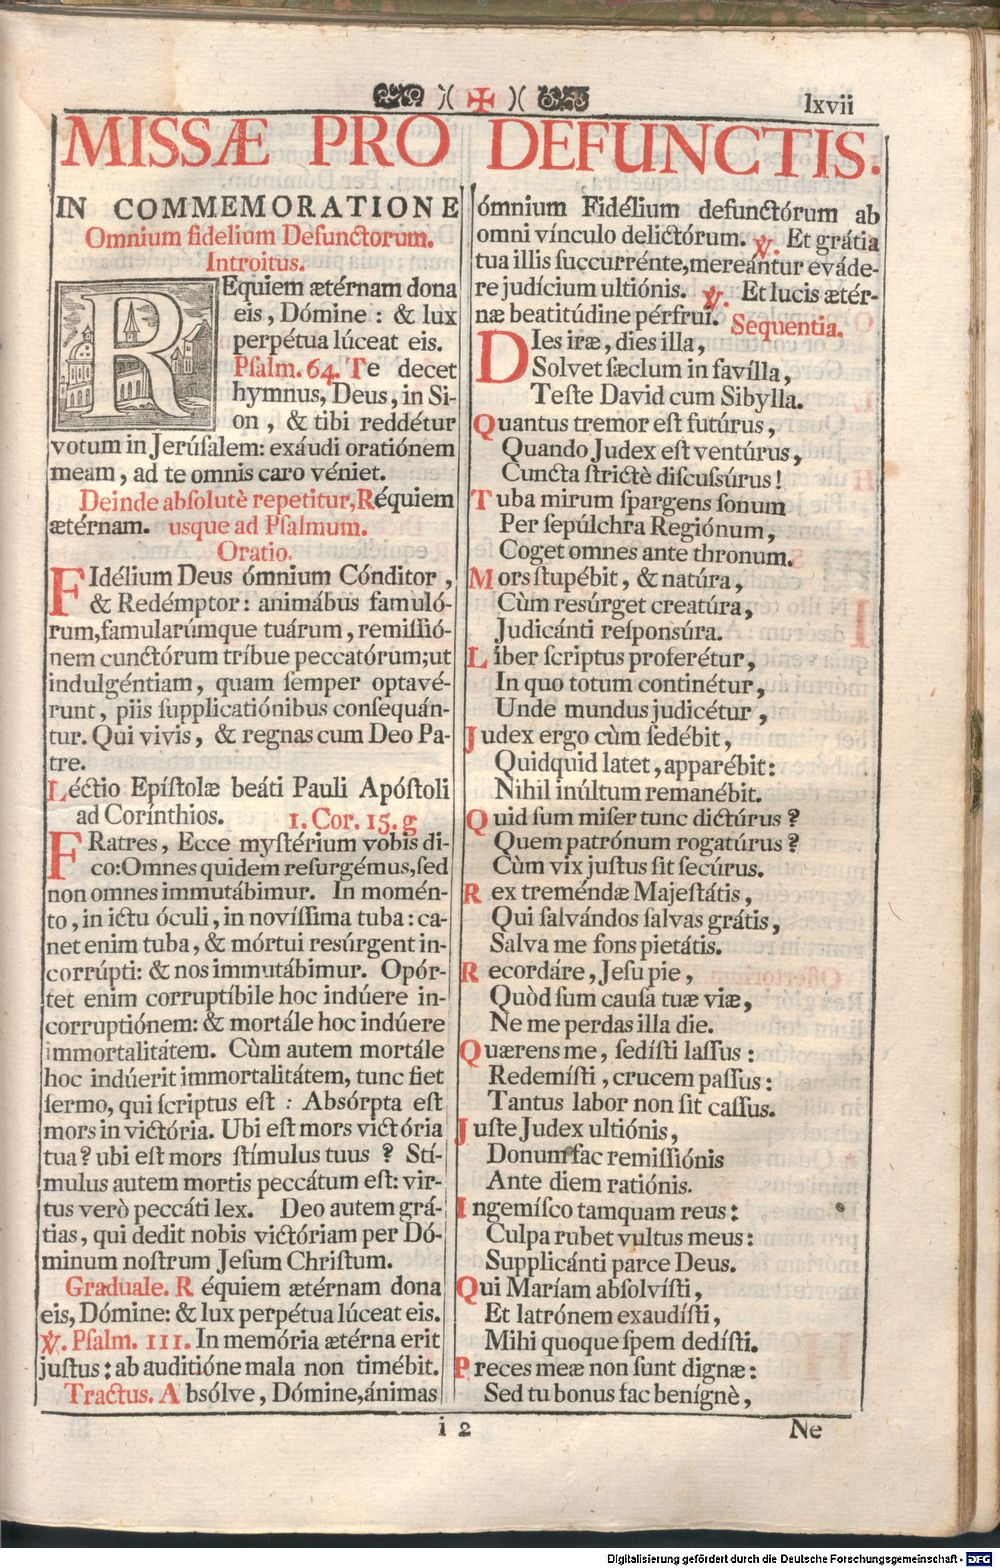 lxvii
MISSÆ PRO DEFUNCTIS.
IN COMMEMORATIONE
Omnium fidelium Defunctorum.
Introitus.
REquiem ætérnam dona
eis, Dómine: & lux
perpétua lúceat eis.
Psalm. 64. Te decet
hymnus, Deus, in Si-
on, & tibi reddétur
votum in Jerúsalem: exáudi oratiónem
meam, ad te omnis caro véniet.
Deinde absolutè repetitur, Réquiem
ætérnam. usque ad Psalmum.
Oratio.
FIdélium Deus ómnium Cónditor,
& Redémptor: animábus famuló-
rum, famularúmque tuárum, remissió-
nem cunctórum tríbue peccatórum; ut
indulgéntiam, quam semper optavé-
runt, piis supplicatiónibus consequán-
tur. Qui vivis, & regnas cum Deo Pa-
tre.
Léctio Epístolæ beáti Pauli Apóstoli
ad Corínthios. 1. Cor. 15. g
FRatres, Ecce mystérium vobis di-
co: Omnes quidem resurgémus, sed
non omnes immutábimur. In momén-
to, in ictu óculi, in novíssima tuba: ca-
net enim tuba, & mórtui resúrgent in-
corrúpti: & nos immutábimur. Opór-
tet enim corruptíbile hoc indúere in-
corruptiónem: & mortále hoc indúere
immortalitátem. Cùm autem mortále
hoc indúerit immortalitátem, tunc fiet
sermo, qui scriptus est: Absórpta est
mors in victória. Ubi est mors victória
tua? ubi est mors stímulus tuus? Stí-
mulus autem mortis peccátum est: vir-
tus verò peccáti lex. Deo autem grá-
tias, qui dedit nobis victóriam per Dó-
minum nostrum Jesum Christum.
Graduale. Réquiem ætérnam dona
eis, Dómine: & lux perpétua lúceat eis.
℣. Psalm. 111. In memória ætérna erit
justus: ab auditióne mala non timébit.
Tractus. Absólve, Dómine, ánimas
ómnium Fidélium defunctórum ab
omni vínculo delictórum. ℣. Et grátia
tua illis succurrénte, mereántur eváde-
re judícium ultiónis. ℣. Et lucis ætér-
næ beatitúdine pérfrui.
Sequentia.
DIes iræ, dies illa,
Solvet sæclum in favílla,
Teste David cum Sibylla.
Quantus tremor est futúrus,
Quando Judex est ventúrus,
Cuncta strictè discussúrus!
Tuba mirum spargens sonum
Per sepúlchra Regiónum,
Coget omnes ante thronum.
Mors stupébit, & natúra,
Cùm resúrget creatúra,
Judicánti responsúra.
Liber scriptus proferétur,
In quo totum continétur,
Unde mundus judicétur,
Judex ergo cùm sedébit,
Quidquid latet, apparébit:
Nihil inúltum remanébit.
Quid sum miser tunc dictúrus?
Quem patrónum rogatúrus?
Cùm vix justus sit secúrus.
Rex treméndæ Majestátis,
Qui salvándos salvas grátis,
Salva me fons pietátis.
Recordáre, Jesu pie,
Quòd sum causa tuæ viæ,
Ne me perdas illa die.
Quærens me, sedísti lassus:
Redemísti, crucem passus:
Tantus labor non sit cassus.
Juste Judex ultiónis,
Donum fac remissiónis
Ante diem ratiónis.
Ingemísco tamquam reus:
Culpa rubet vultus meus:
Supplicánti parce Deus.
Qui Maríam absolvísti,
Et latrónem exaudísti,
Mihi quoque spem dedísti.
Preces meæ non sunt dignæ:
Sed tu bonus fac benígnè,
i 2
Ne
Digitalisierung gefördert durch die Deutsche Forschungsgemeinschaft - DFG